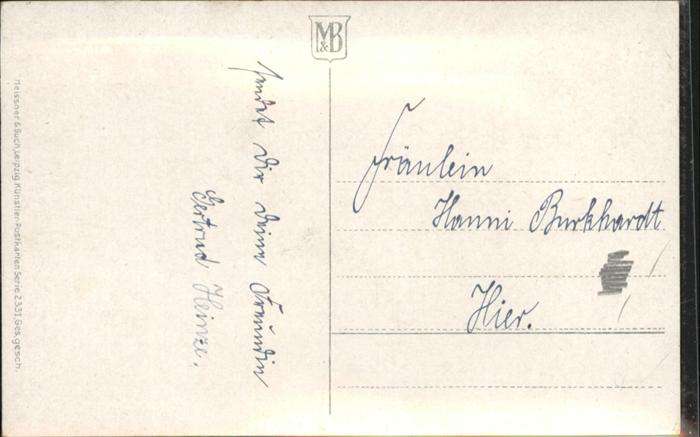 M&B
sendet Dir Deine Freundin
Gertrud Heinze.
Fräulein
Hanni Burkhardt
Hier.
Meissner & Buch, Leipzig Künstler-Postkarten Serie 2331. Ges. gesch.